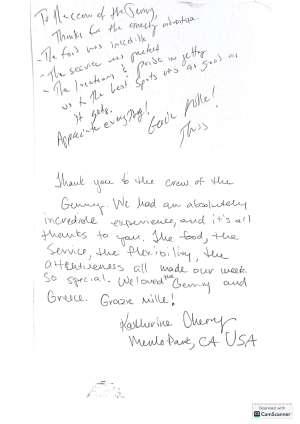 To the crew of the Genny,
Thanks for the amazing adventure.
- The food was incredible
- The service was perfect
- The locations & pride in getting
us to the best spots was as good as
it gets.
Appreciate everything!
Grazie mille!
Thank you to the crew of the
Genny. We had an absolutely
incredible experience, and it's all
thanks to you. The food, the
service, the flexibility, the
attentiveness all made our week
so special. We loved the Genny and
Greece. Grazie mille!
Katherine
Menlo Park, CA USA
Scanned with
CamScanner